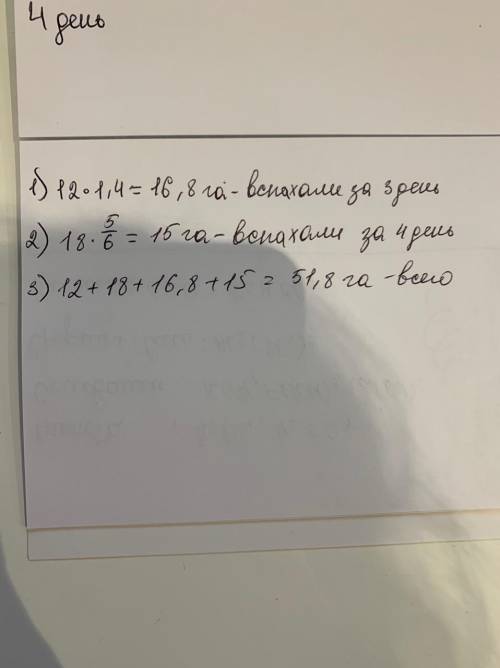 4 день
1) 12 · 1,4 = 16,8 га - вспахали за 3 день
2) 18 · 5/6 = 15 га - вспахали за 4 день
3) 12 + 18 + 16,8 + 15 = 51,8 га - всего